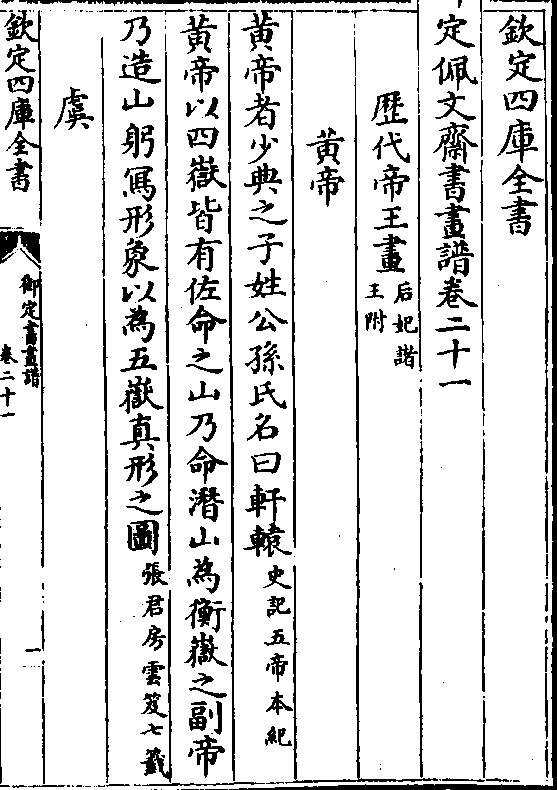 欽定四庫全書
定佩文齋書畫譜卷二十一
歷代帝王畫后妃諸王附
黃帝
黃帝者少典之子姓公孫氏名曰軒轅史記五帝本紀
黃帝以四嶽皆有佐命之山乃命潛山為衡嶽之副帝
乃造山躬寫形象以為五嶽真形之圖張君房雲笈七籤
虞
欽定四庫全書
御定書畫譜
卷二十一
一